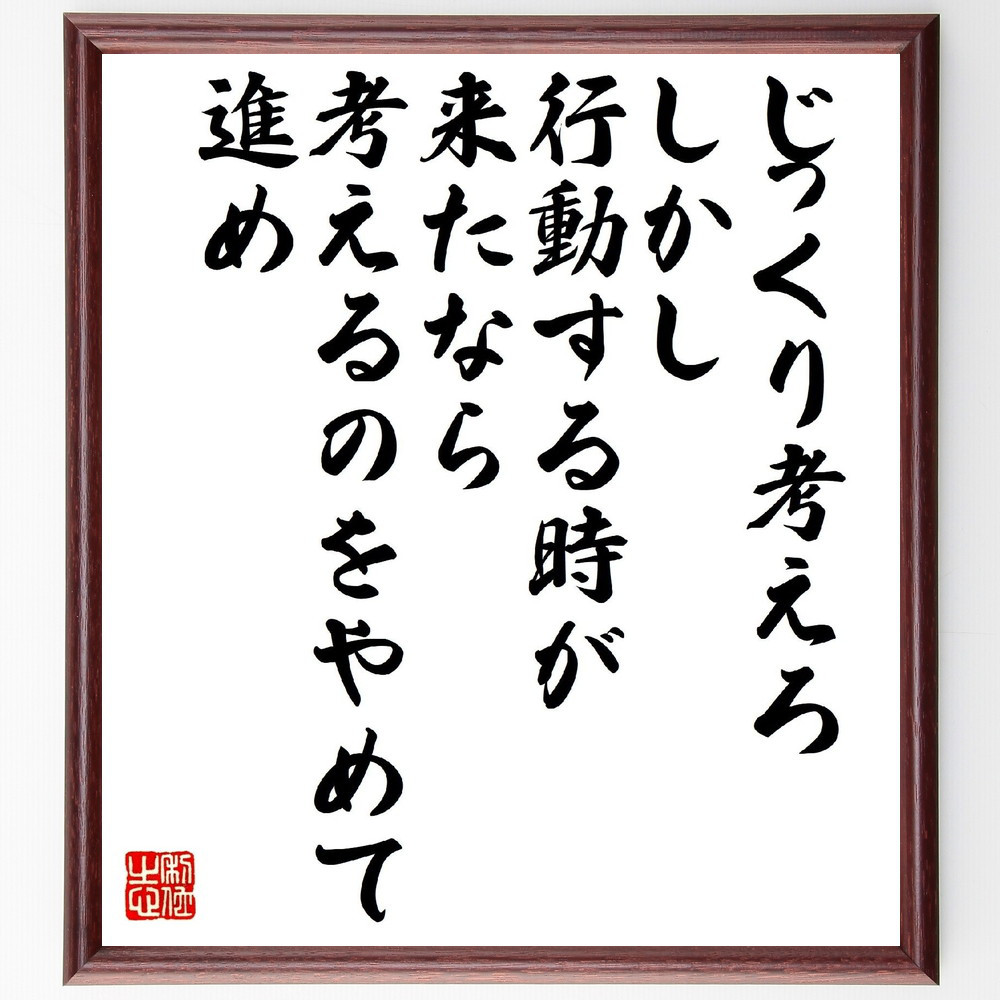 じっくり考えろ
しかし
行動する時が
来たなら
考えるのをやめて
進め